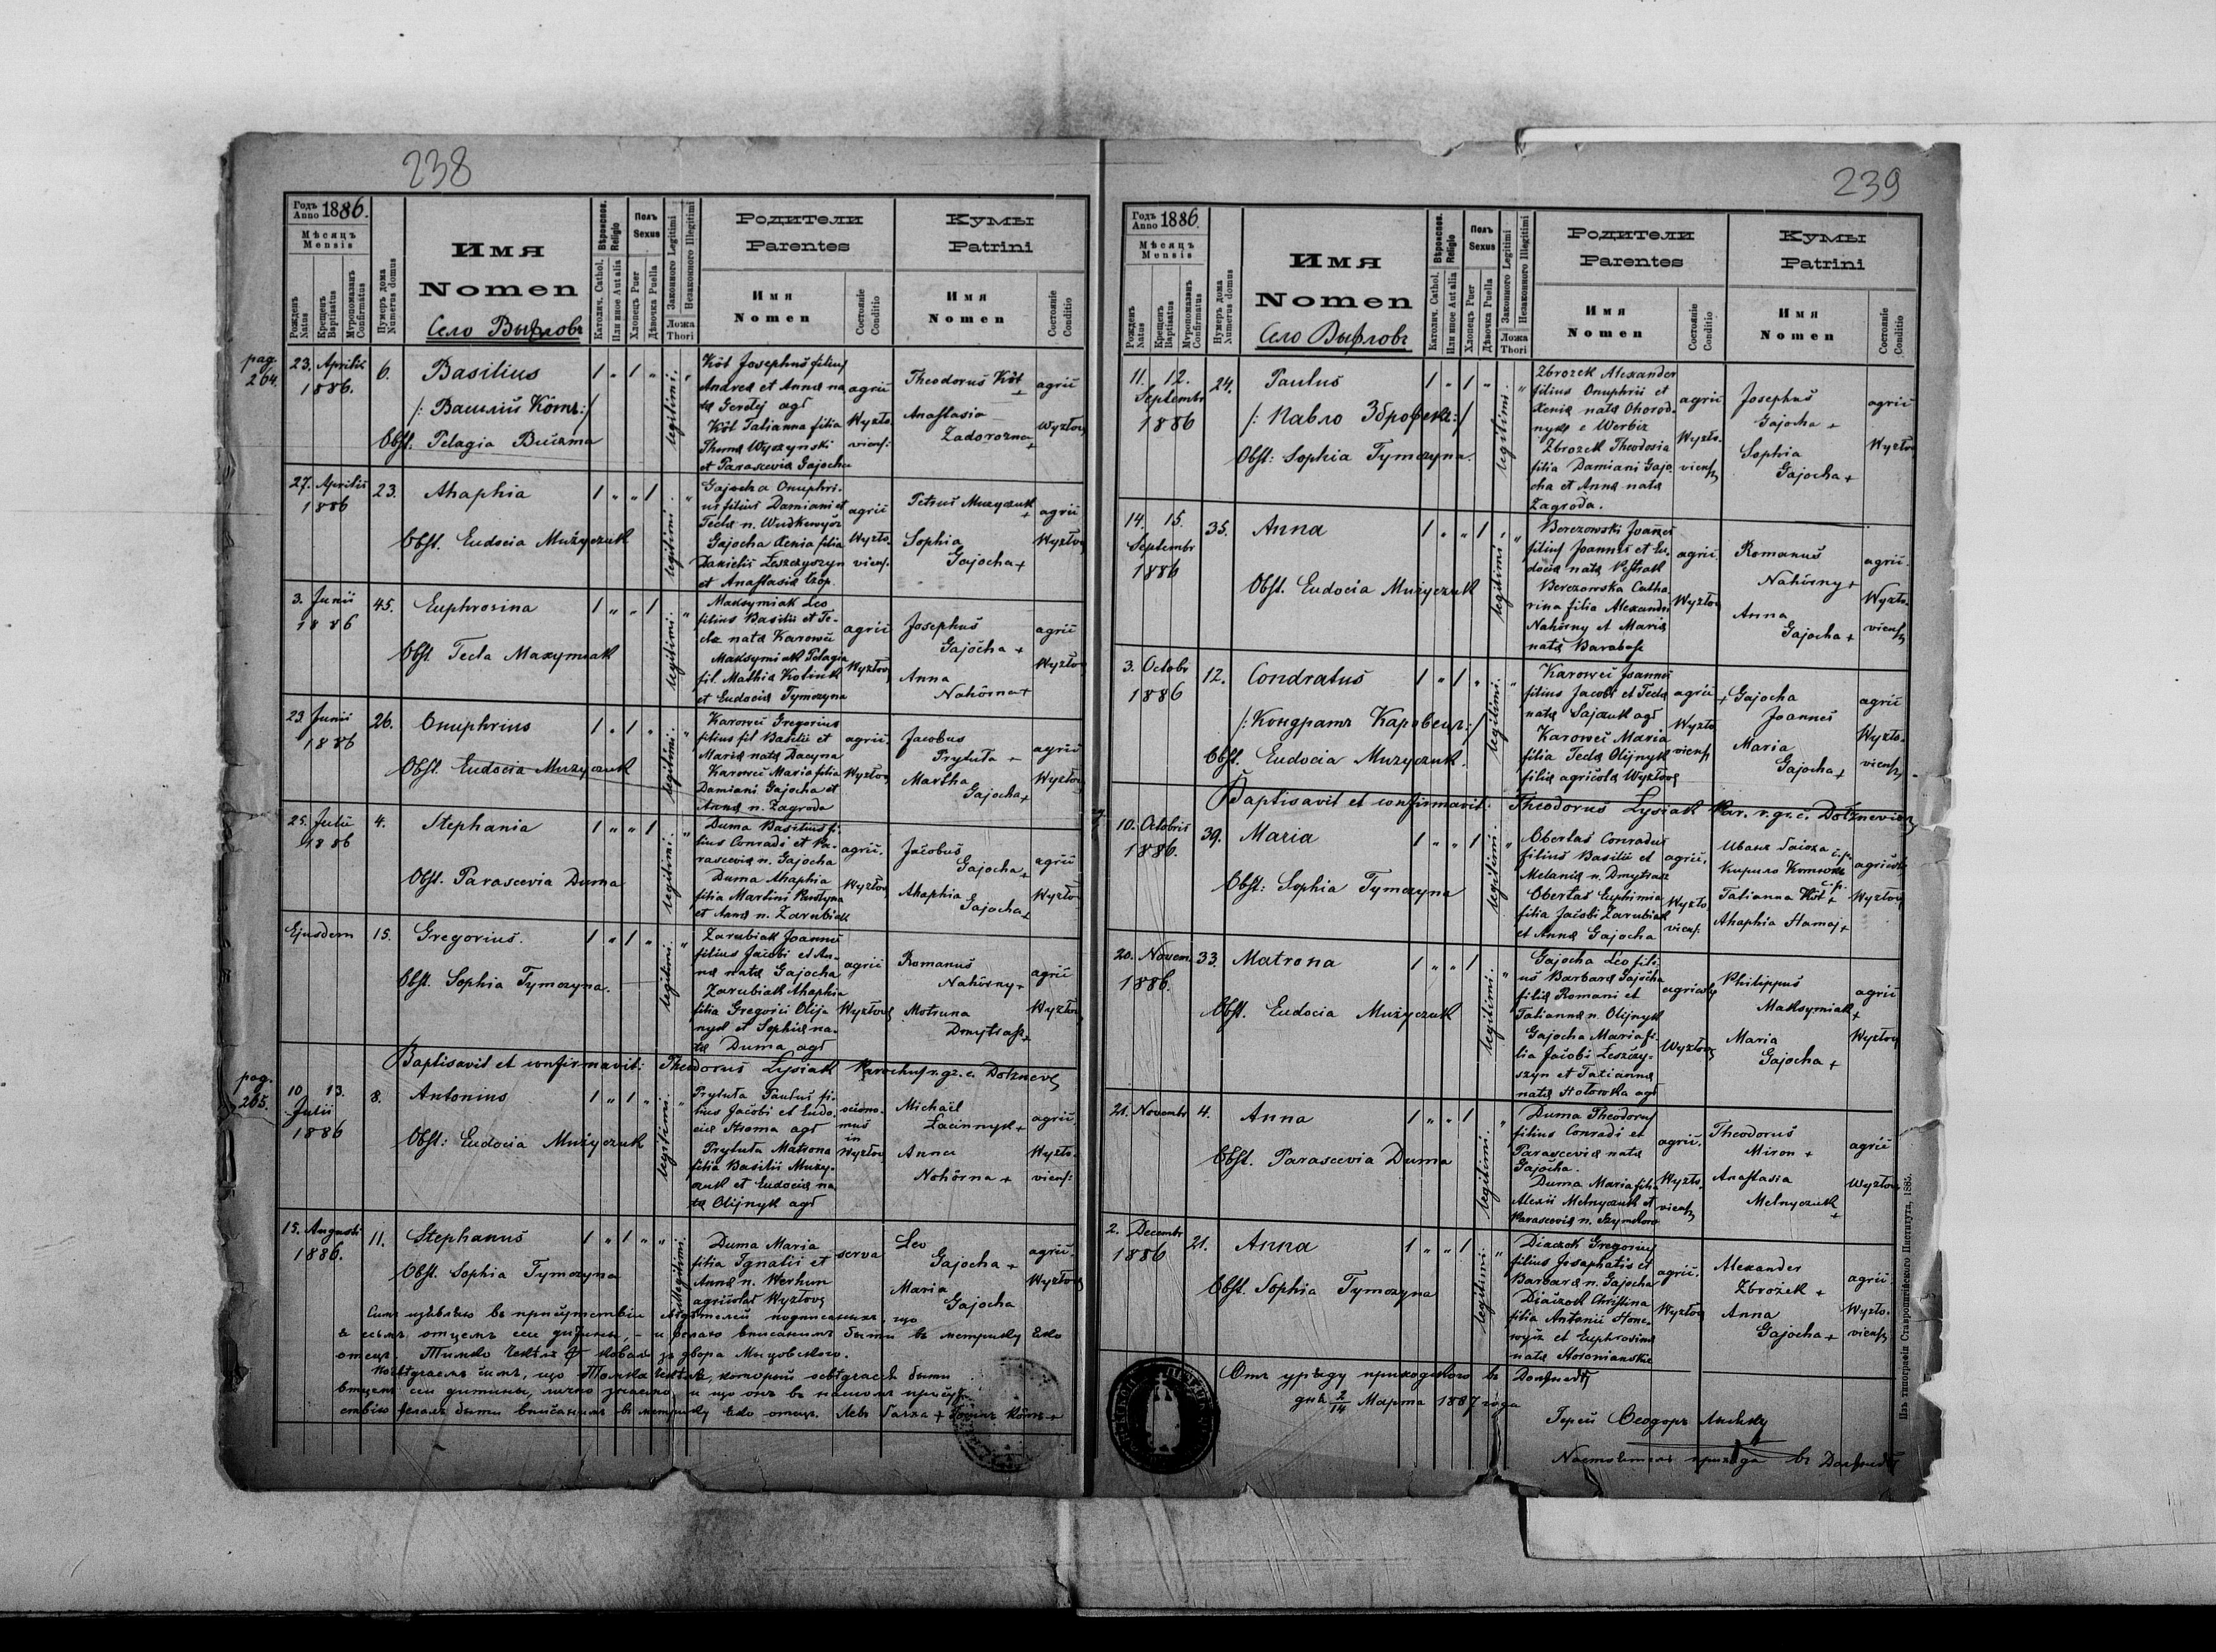 238
Годъ Anno 1886.
Мѣсяцъ
Mensis
Рожденъ Natus
Крещенъ Baptisatus
Муропомазанъ Confirmatus
Нумеръ дома Numerus domus
Имя
Nomen
Село Вызловъ
Вѣроиспов. Religio
Католич. Cathol.
Или иное Aut alia
Полъ
Sexus
Хлопецъ Puer
Дѣвочка Puella
Законного Legitimi
Незаконного Illegitimi
Ложа
Thori
Родители
Parentes
Имя
Nomen
Состояніе Conditio
Кумы
Patrini
Имя
Nomen
Состояніе Conditio
pag. 264.
23. Aprilis 1886. 6. Basilius
/: Василій Кôтъ :/
Obst. Pelagia
legitimi.
Kôt Josephus filius
Andreä et Anna na
ta Gerdej agr
Kôt Tatianna filia
Thoma Wyszynski
et Parascevia Gajocha
agrii Wyzło- viens:
Theodorus Kôt +
Anastasia
Zadorozna +
agrii Wyzłov
27. Aprilis 1886 23. Ahaphia
Obst. Eudocia Mużyczuk
legitimi
Gajocha Onuphri-
us filius Damiani et
Tecla n. Wudkewycz
Gajocha Xenia filia
Danielis Leszczyszyn
et Anastasia Czop.
agrii Wyzło- viens.
Petrus Muzyczuk +
Sophia
Gajocha +
agrii Wyzłov
3. Junii 1886 45. Euphrosina
Obst Tecla Maxymiak
legitimi.
Maksymiak Leo
filius Basilii et Te-
cla nata Karoweć
Maksymiak Pelagia
fil. Mathia Kotiuk
et Eudocia Tymczyna
agrii Wyzłov
Josephus
Gajocha +
Anna
Nahôrna +
agrii Wyzłov
23. Junii 1886 26. Onuphrius
Obst. Eudocia Muzyczuk
legitimi.
Karoweć Gregorius
filius fil Basilii et
Maria nata Dacyna
Karoweć Maria filia
Damiani Gajocha et
Anna n. Zagroda
agrii. Wyzłov
Jacobus
Prytuła +
Martha
Gajocha +
agrii Wyzłov
25. Julii 1886 4. Stephania
Obst. Parascevia Duma
legitimi.
Duma Basilius fi-
lius Conradi et Pa-
rascevia n. Gajocha
Duma Ahaphia
filia Martini Pustyna
et Anna n. Zarubiak
agrii. Wyzłov
Jacobus
Gajocha +
Ahaphia
Gajocha +
agrii Wyzłov
Ejusdem 15. Gregorius.
Obst. Sophia Tymczyna.
legitimi.
Zarubiak Joannes
filius Jacobi et An-
na nata Gajocha
Zarubiak Ahaphia
filia Gregorii Olija
nyk et Sophia na-
ta Duma agr
agrii Wyzłov
Romanus
Nahôrny +
Motruna
Dmytrasz +
agrii Wyzłov
Baptisavit et confirmavit: Theodorus Lysiak Parochus r. gr. c. Dołznev
pag. 265.
10 13. Julii 1886 8. Antonius
Obst: Eudocia Mużyczuk
legitimi.
Prytuła Paulus fi-
lius Jacobi et Eudo-
cia agr
Prytuła Matrona
filia Basilii Muzy-
czuk et Eudocia na
ta Olijnyk agr
in Wyzłov
Michaël
+
Anna
Nohôrna +
agrii Wyzło- viens:
15. Augusti 1886. 11. Stephanus
Obst. Sophia Tymczyna
illegitimi.
Duma Maria
filia Ignatii et
Anna n. Werhun
Wyzłov
serva
Leo
Gajocha +
Maria
Gajocha
agrii. Wyzłov
239
Годъ Anno 1886.
Мѣсяцъ
Mensis
Рожденъ Natus
Крещенъ Baptisatus
Муропомазанъ Confirmatus
Нумеръ дома Numerus domus
Имя
Nomen
Село Вызловъ
Вѣроиспов. Religio
Католич. Cathol.
Или иное Aut alia
Полъ
Sexus
Хлопецъ Puer
Дѣвочка Puella
Законного Legitimi
Незаконного Illegitimi
Ложа
Thori
Родители
Parentes
Имя
Nomen
Состояніе Conditio
Кумы
Patrini
Имя
Nomen
Состояніе Conditio
11. 12. Septembr 1886 24. Paulus
/: Павло Зброжекъ :/
Obst: Sophia Tymczyna.
legitimi.
Zbrozek Alexander
filius Onuphrii et
Xenia nata Ohorod-
nyk e Werbiz
Zbrozek Theodosia
filia Damiani Gajo-
cha et Anna nata
Zagroda.
agrii Wyzło- viens
Josephus
Gajocha +
Sophia
Gajocha +
agrii Wyzłov
14. 15. Septembr 1886 35. Anna
Obst. Eudocia Muzyczuk
legitimi.
Berezowski Joannes
filius Joannis et Eu-
docia nata
Berezowska Catha-
rina filia Alexandri
Nahôrny et Maria
nata Barabasz
agrii. Wyzłov
Romanus
Nahôrny +
Anna
Gajocha +
agrii. Wyzło- viens
3. Octobr 1886 12. Condratus
/: Кондратъ Каровець :/
Obst. Eudocia Muzyczuk.
legitimi.
Karoweć Joannes
filius Jacobi et Tecla
nata Sajczuk agr
Karoweć Maria
filia Tecla Olijnyk
filia agricola Wyzłov
agrii Wyzło- viens
+ Gajocha
Joannes
Maria
Gajocha +
agrii Wyzło- viens
Baptisavit et confirmavit: Theodorus Lysiak Par. r. gr. c. Dołzneviens
10. Octobris 1886. 39. Maria
Obst: Sophia Tymczyna
legitimi.
Obertas Conradus
filius Basilii et
Melania n. Dmytrasz
Obertas Euphimia
filia Jacobi Zarubiak
et Anna Gajocha
agrii. Wyzło- viens:
Иванъ Гаіоха с.р.
Кирило с.р.
Tatianna Kôt +
Ahaphia Hamaj +
agricolae Wyzłov
20. Novem. 1886. 33. Matrona
Obst. Eudocia Mużyczuk
legitimi.
Gajocha Leo fili-
us Barbara Gajocha
filia Romani et
Tatianna n. Olijnyk
Gajocha Maria fi-
lia Jacobi Leszczy-
szyn et Tatianna
nata Hołowka agr
agricola Wyzłov
Philippus
Maksymiak +
Maria
Gajocha +
agrii Wyzłov
21. Novembr 4. Anna
Obst. Parascevia Duma
legitimi.
Duma Theodorus
filius Conradi et
Parascevia nata
Gajocha.
Duma Maria filia
Alexii Melnyczuk et
Parascevia n.
agrii. Wyzło- viens
Theodorus
Miron +
Anastasia
Melnyczuk +
agrii Wyzłov
2. Decembr 1886 21. Anna
Obst. Sophia Tymczyna
legitimi.
Diaczok Gregorius
filius Josaphatis et
Barbara n. Gajocha
Diaczok Christina
filia Antonii Hone-
wycz et Euphrosina
nata
agrii. Wyzłov
Alexander
Zbrożek +
Anna
Gajocha +
agrii. Wyzło- viens
Отъ уряду приходского въ Должневѣ
дня 2/14 Марта 1887 года
Іерей Ѳеодоръ Лысякъ
прихода въ Должневѣ
Изъ типографіи Ставропигійского Института, 1885.